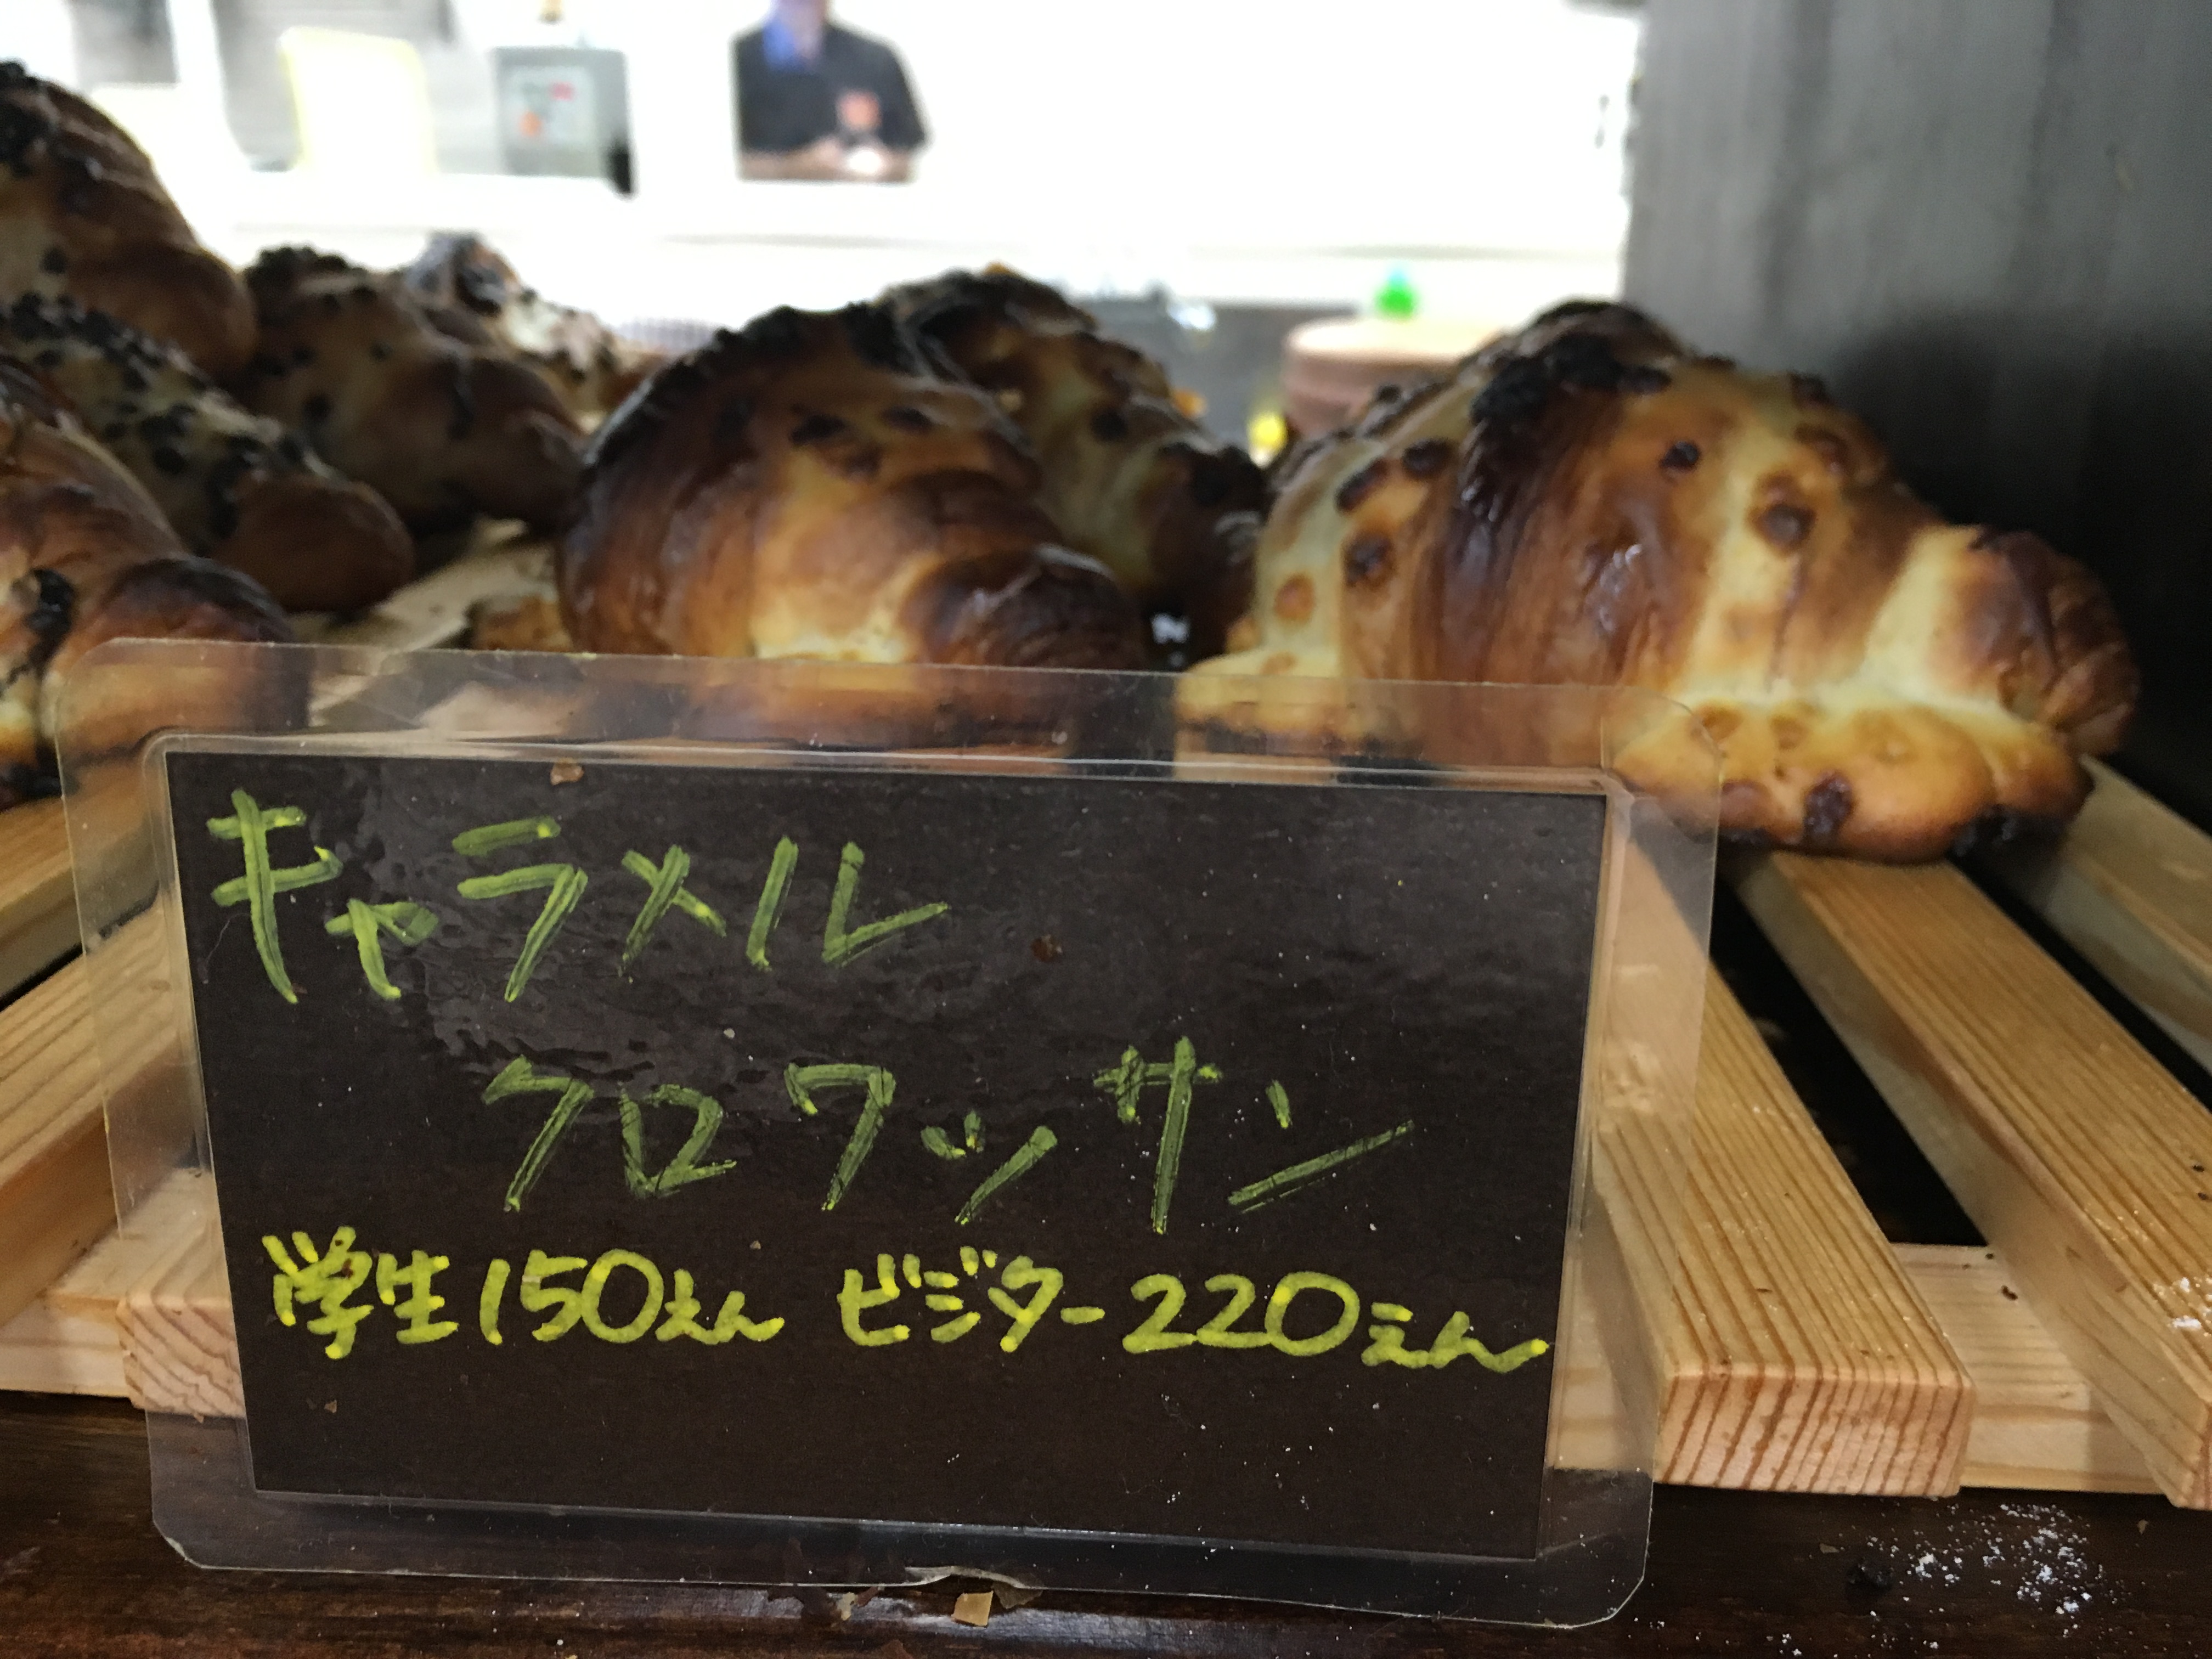 キャラメル
クロワッサン
学生150えん ビジター220えん